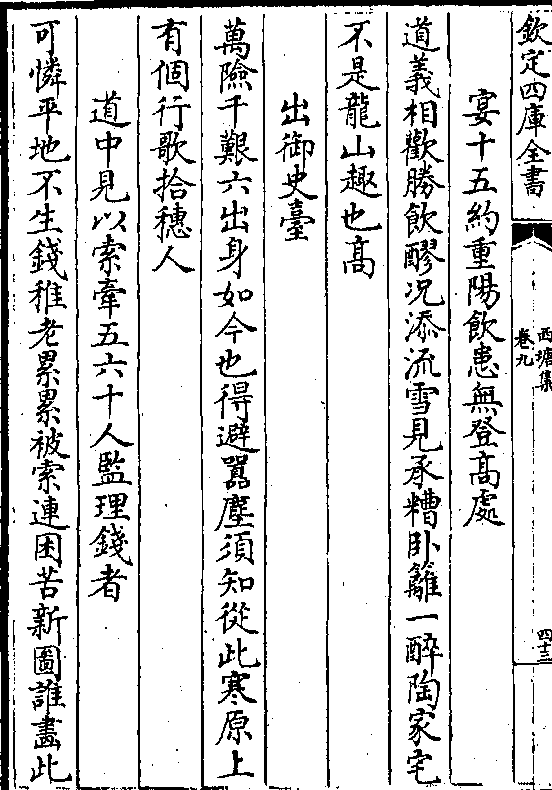 欽定四庫全書
西塘集
卷九
四十三
宴十五約重陽飲患無登髙處
道義相歡勝飲醪况添流雪見承糟卧籬一醉陶家宅
不是龍山趣也髙
出御史臺
萬險千艱六出身如今也得避囂塵須知從此寒原上
有個行歌拾穗人
道中見以索牽五六十人監理錢者
可憐平地不生錢稚老累累被索連困苦新圖誰畫此